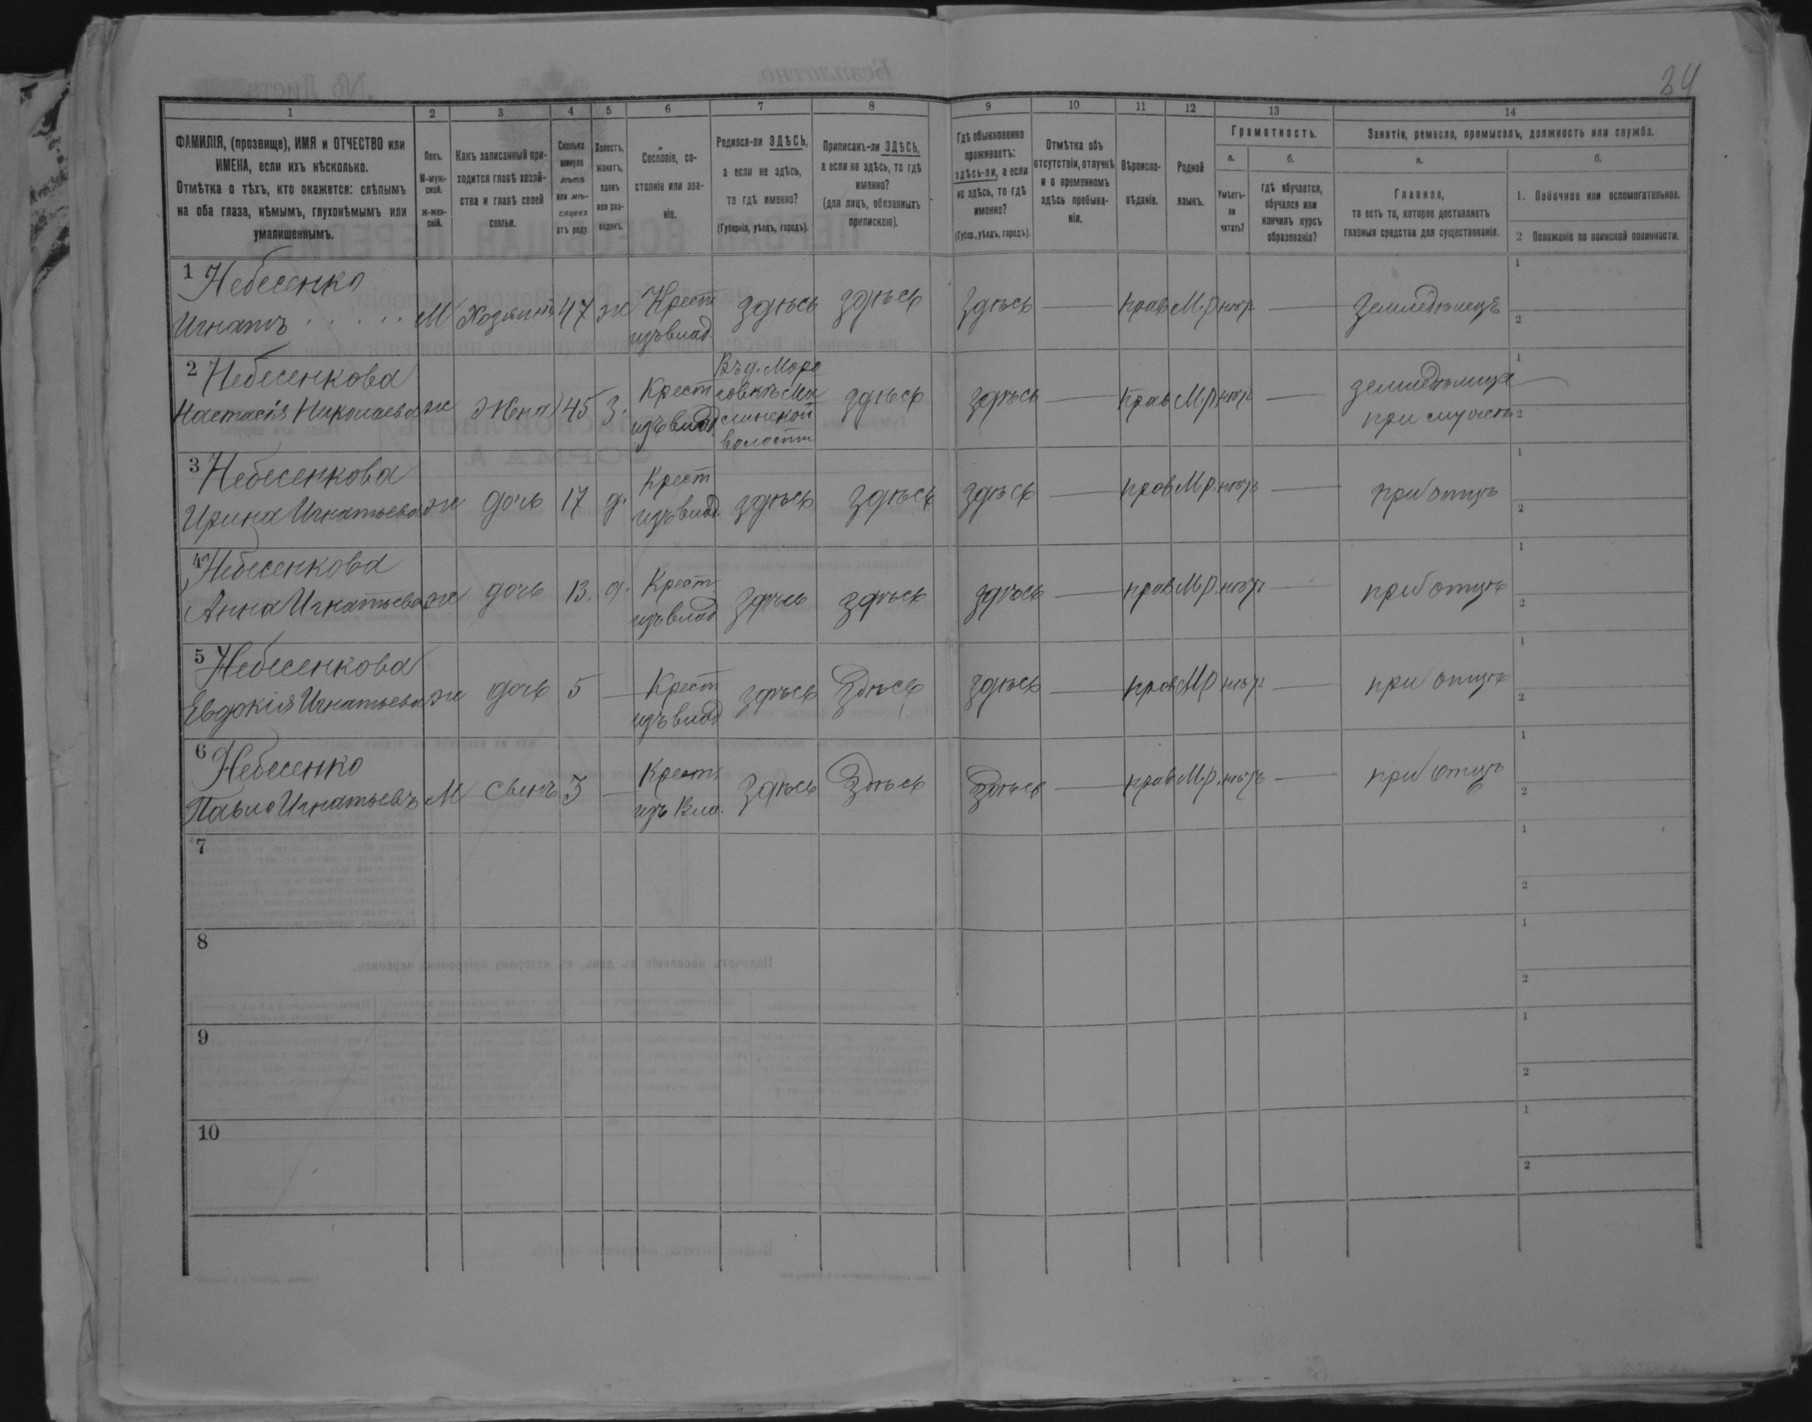 34
1 2 3 4 5 6 7 8 9 10 11 12 13 14
ФАМИЛІЯ, (прозвище), ИМЯ и ОТЧЕСТВО или
ИМЕНА, если ихъ нѣсколько.
Отмѣтка о тѣхъ, кто окажется: слѣпымъ
на оба глаза, нѣмымъ, глухонѣмымъ или
умалишеннымъ.
Полъ.
М-муж-
ской.
Ж-жен-
скій.
Какъ записанный при-
ходится главѣ хозяй-
ства и главѣ своей
семьи.
Сколько
минуло
лѣтъ
или мѣ-
сяцевъ
отъ роду.
Холостъ,
женатъ,
вдовъ
или раз-
веденъ.
Сословіе, со-
стояніе или зва-
ніе.
Родился-ли ЗДѢСЬ,
а если не здѣсь,
то гдѣ именно?
(Губернія, уѣздъ, городъ).
Приписанъ-ли ЗДѢСЬ,
а если не здѣсь, то гдѣ
именно?
(для лицъ, обязанныхъ
припискою).
Гдѣ обыкновенно
проживаетъ:
здѣсь-ли, а если
не здѣсь, то гдѣ
именно?
(Губер., уѣздъ, городъ).
Отмѣтка объ
отсутствіи, отлучкѣ
и о временномъ
здѣсь пребыва-
ніи.
Вѣроиспо-
вѣданіе.
Родной
языкъ.
Грамотность.
а.
Умѣетъ-
ли
читать?
б.
гдѣ обучается,
обучался или
кончилъ курсъ
образованія?
Занятіе, ремесло, промыселъ, должность или служба.
а.
Главное,
то есть то, которое доставляетъ
главныя средства для существованія.
б.
1. Побочное или вспомогательное.
2 Положеніе по воинской повинности.
1 Небесенко
Игнатъ М Хозяинъ 47 ж Крест изъ влад. здѣсь здѣсь здѣсь — прав М.р нѣтъ — земледѣлецъ
2 Небесенкова
Настасія Николаева ж жена 45 з. Крест изъ влад Въ д. Моро
здѣсь здѣсь — прав М.р нѣтъ — земледѣлица —
волости
при мужѣ
3 Небесенкова
Ирина Игнатьева ж дочь 17 д. Крест изъ влад. здѣсь здѣсь здѣсь — прав М.р. нѣтъ — при отцѣ
4 Небесенкова
Анна Игнатьева ж дочь 13. д. Крест изъ влад здѣсь здѣсь здѣсь — прав М.р. нѣтъ — при отцѣ
5 Небесенкова
Евдокія Игнатьева ж дочь 5 — Крест изъ влад здѣсь Здѣсь здѣсь — прав М.р нѣтъ — при отцѣ
6 Небесенко
Павло Игнатьевъ М сынъ 3 — Крест изъ Вла. здѣсь Здѣсь Здѣсь — прав М.р. нѣтъ — при отцѣ
7
8
9
10